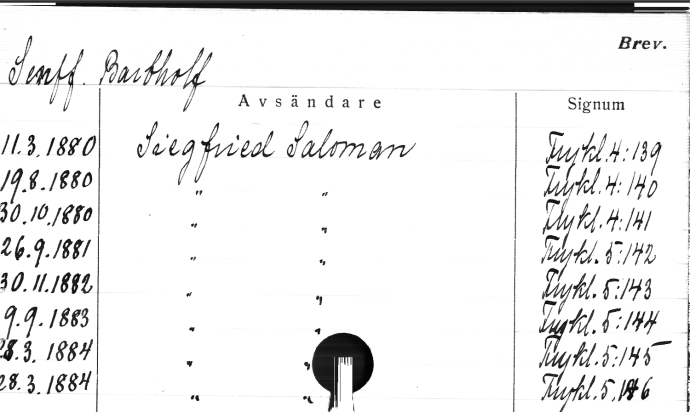 Brev.
Senff. Bartholf
Avsändare Signum
11.3.1880 Siegfried Saloman Frykl.4:139
19.8.1880 " " Frykl.4:140
30.10.1880 " " Frykl.4:141
26.9.1881 " " Frykl.5:142
30.11.1882 " " Frykl.5:143
9.9.1883 " " Frykl.5:144
28.3.1884 " " Frykl.5:145
28.3.1884 " " Frykl.5,146